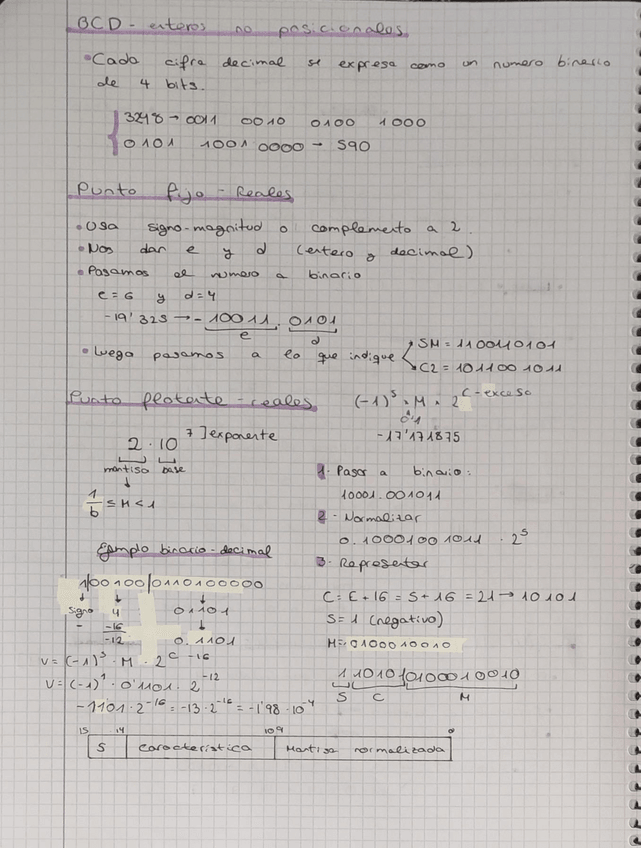 BCD - enteros no posicionales
• Cada cifra decimal se expresa como un numero binario
de 4 bits.
3248 → 0011 0010 0100 1000
0101 1001 0000 → 590
Punto fijo - Reales
• Usa signo-magnitud o complemento a 2.
• Nos dan e y d (entero y decimal)
• Pasamos el numero a binario
e = 6 y d = 4
-19'325 → - 10011 . 0101
e d
• Luego pasamos a lo que indique
SM = 1100110101
C2 = 1011001011
Punto flotante - reales
2 · 10⁷ ] exponente
mantisa base
1/b ≤ M < 1
Ejemplo binario - decimal
1|00100|0110100000
signo 4 01101
- -16
-12 0.1101
V = (-1)ˢ · M · 2ᶜ⁻¹⁶
V = (-1)¹ · 0'1101 · 2⁻¹²
-1101 · 2⁻¹⁶ = -13 · 2⁻¹⁶ = -1'98 · 10⁻⁴
(-1)ˢ · M · 2ᶜ⁻ᵉˣᶜᵉˢᵒ
0'1
-17'171875
1. Pasar a binario:
10001.001011
2 - Normalizar
0.10001001011 · 2⁵
3. Representar
C = E + 16 = 5 + 16 = 21 → 10101
S = 1 (negativo)
M = 0100010010
1 10101 0100010010
S C M
15 14 10 9 0
S Característica Mantisa normalizada